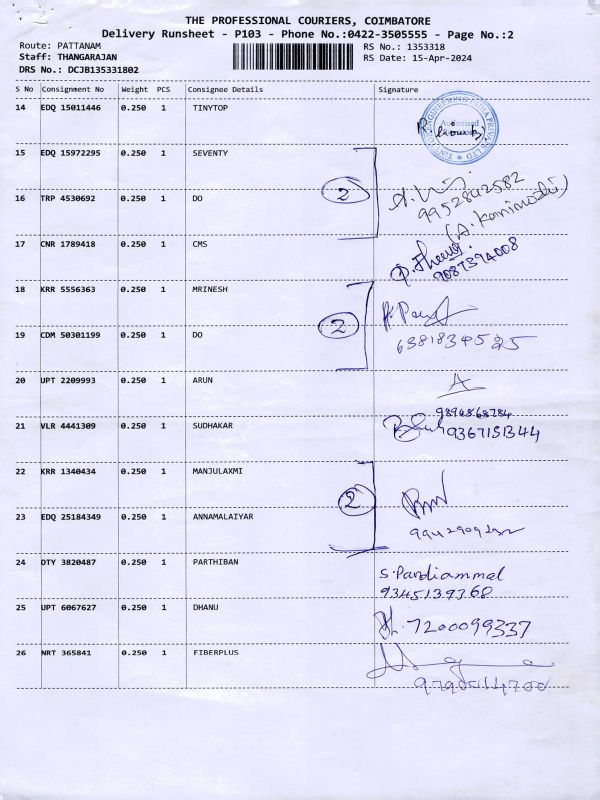 THE PROFESSIONAL COURIERS, COIMBATORE
Delivery Runsheet - P103 - Phone No.:0422-3505555 - Page No.:2
Route: PATTANAM RS No.: 1353318
Staff: THANGARAJAN RS Date: 15-Apr-2024
DRS No.: DCJB135331802
S No Consignment No Weight PCS Consignee Details Signature
14 EDQ 15011446 0.250 1 TINYTOP
Authorised
15 EDQ 15972295 0.250 1 SEVENTY
2
16 TRP 4530692 0.250 1 DO
9952842582
(A. Kanimozhi)
17 CNR 1789418 0.250 1 CMS
9087394008
18 KRR 5556363 0.250 1 MRINESH
2
19 CDM 50301199 0.250 1 DO
6381834525
20 UPT 2209993 0.250 1 ARUN
A
9894868784
21 VLR 4441309 0.250 1 SUDHAKAR
9367151344
22 KRR 1340434 0.250 1 MANJULAXMI
2
23 EDQ 25184349 0.250 1 ANNAMALAIYAR
24 DTY 3820487 0.250 1 PARTHIBAN
S. Pandiammal
9345139368
25 UPT 6067627 0.250 1 DHANU
7200099337
26 NRT 365841 0.250 1 FIBERPLUS